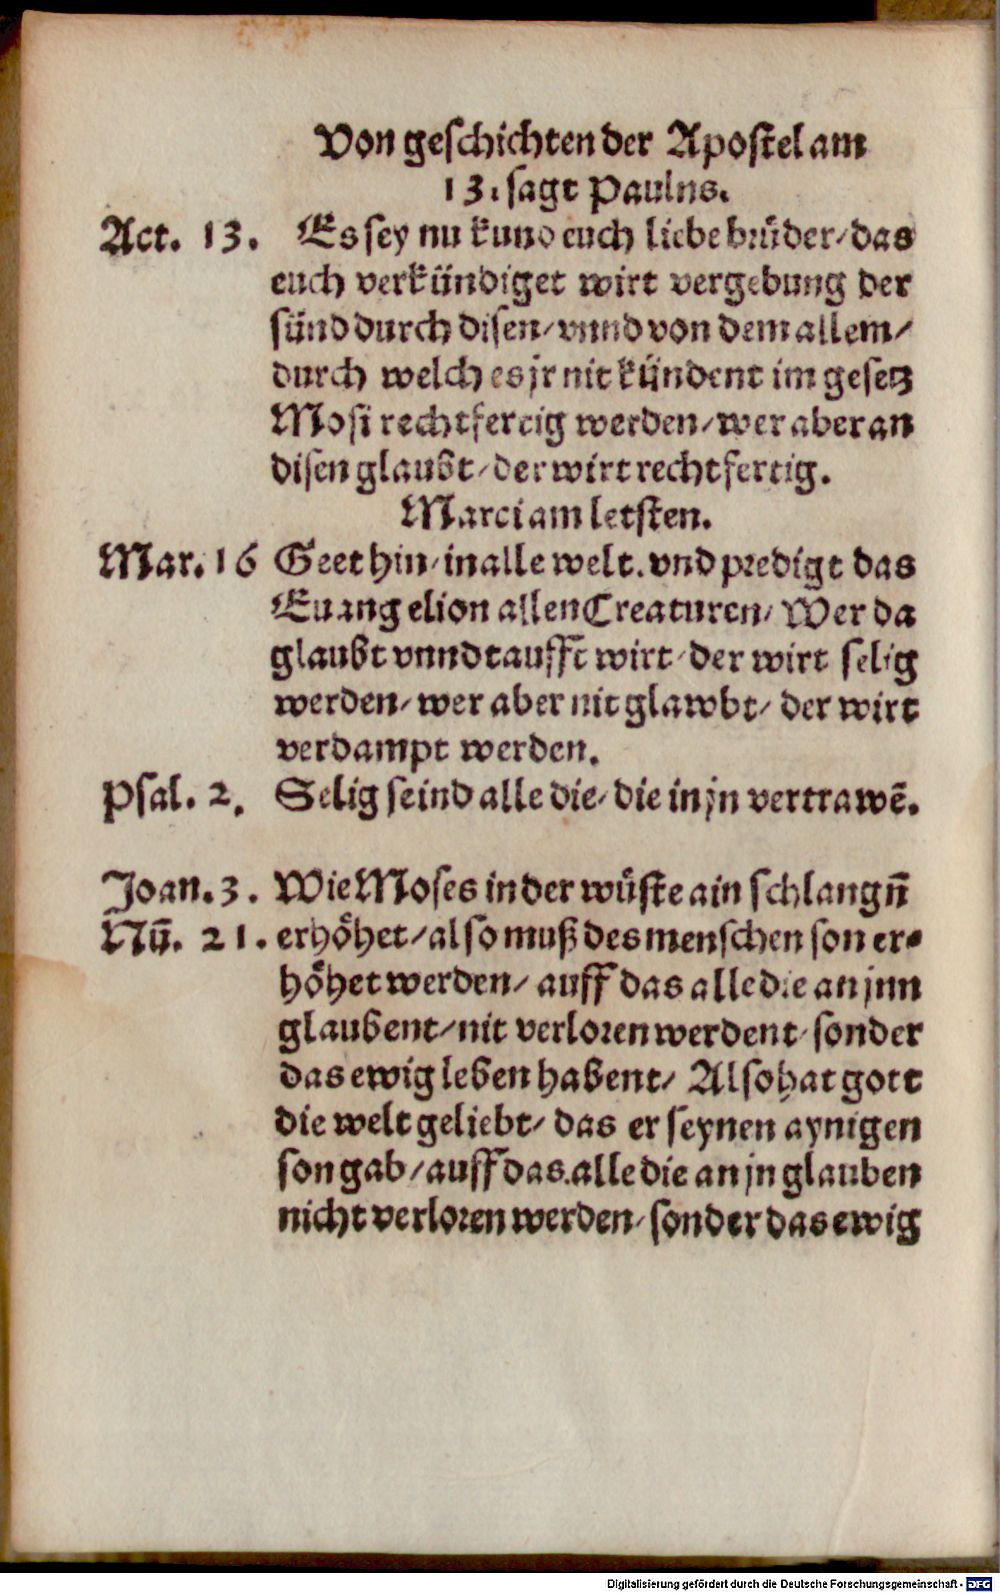 Von geschichten der Apostel am
13. sagt Paulns.
Act. 13. Es sey nu kund euch liebe brüder/ das
euch verkündiget wirt vergebung der
sünd durch disen/ vnnd von dem allem/
durch welch es jr nit kündent im gesetz
Mosi rechtfertig werden/ wer aber an
disen glaubt/ der wirt rechtfertig.
Marci am letsten.
Mar. 16 Geet hin/ in alle welt. vnd predigt das
Euangelion allen Creaturen/ Wer da
glaubt vnnd taufft wirt/ der wirt selig
werden/ wer aber nit glawbt/ der wirt
verdampt werden.
Psal. 2. Selig seind alle die/ die in jn vertrawē.
Joan. 3. Wie Moses in der wüste ain schlangn̄
Nū. 21. erhöhet/ also muß des menschen son er-
höhet werden/ auff das alle die an jnn
glaubent/ nit verloren werdent/ sonder
das ewig leben habent/ Also hat gott
die welt geliebt/ das er seynen aynigen
son gab/ auff das. alle die an jn glauben
nicht verloren werden/ sonder das ewig
Digitalisierung gefördert durch die Deutsche Forschungsgemeinschaft - DFG